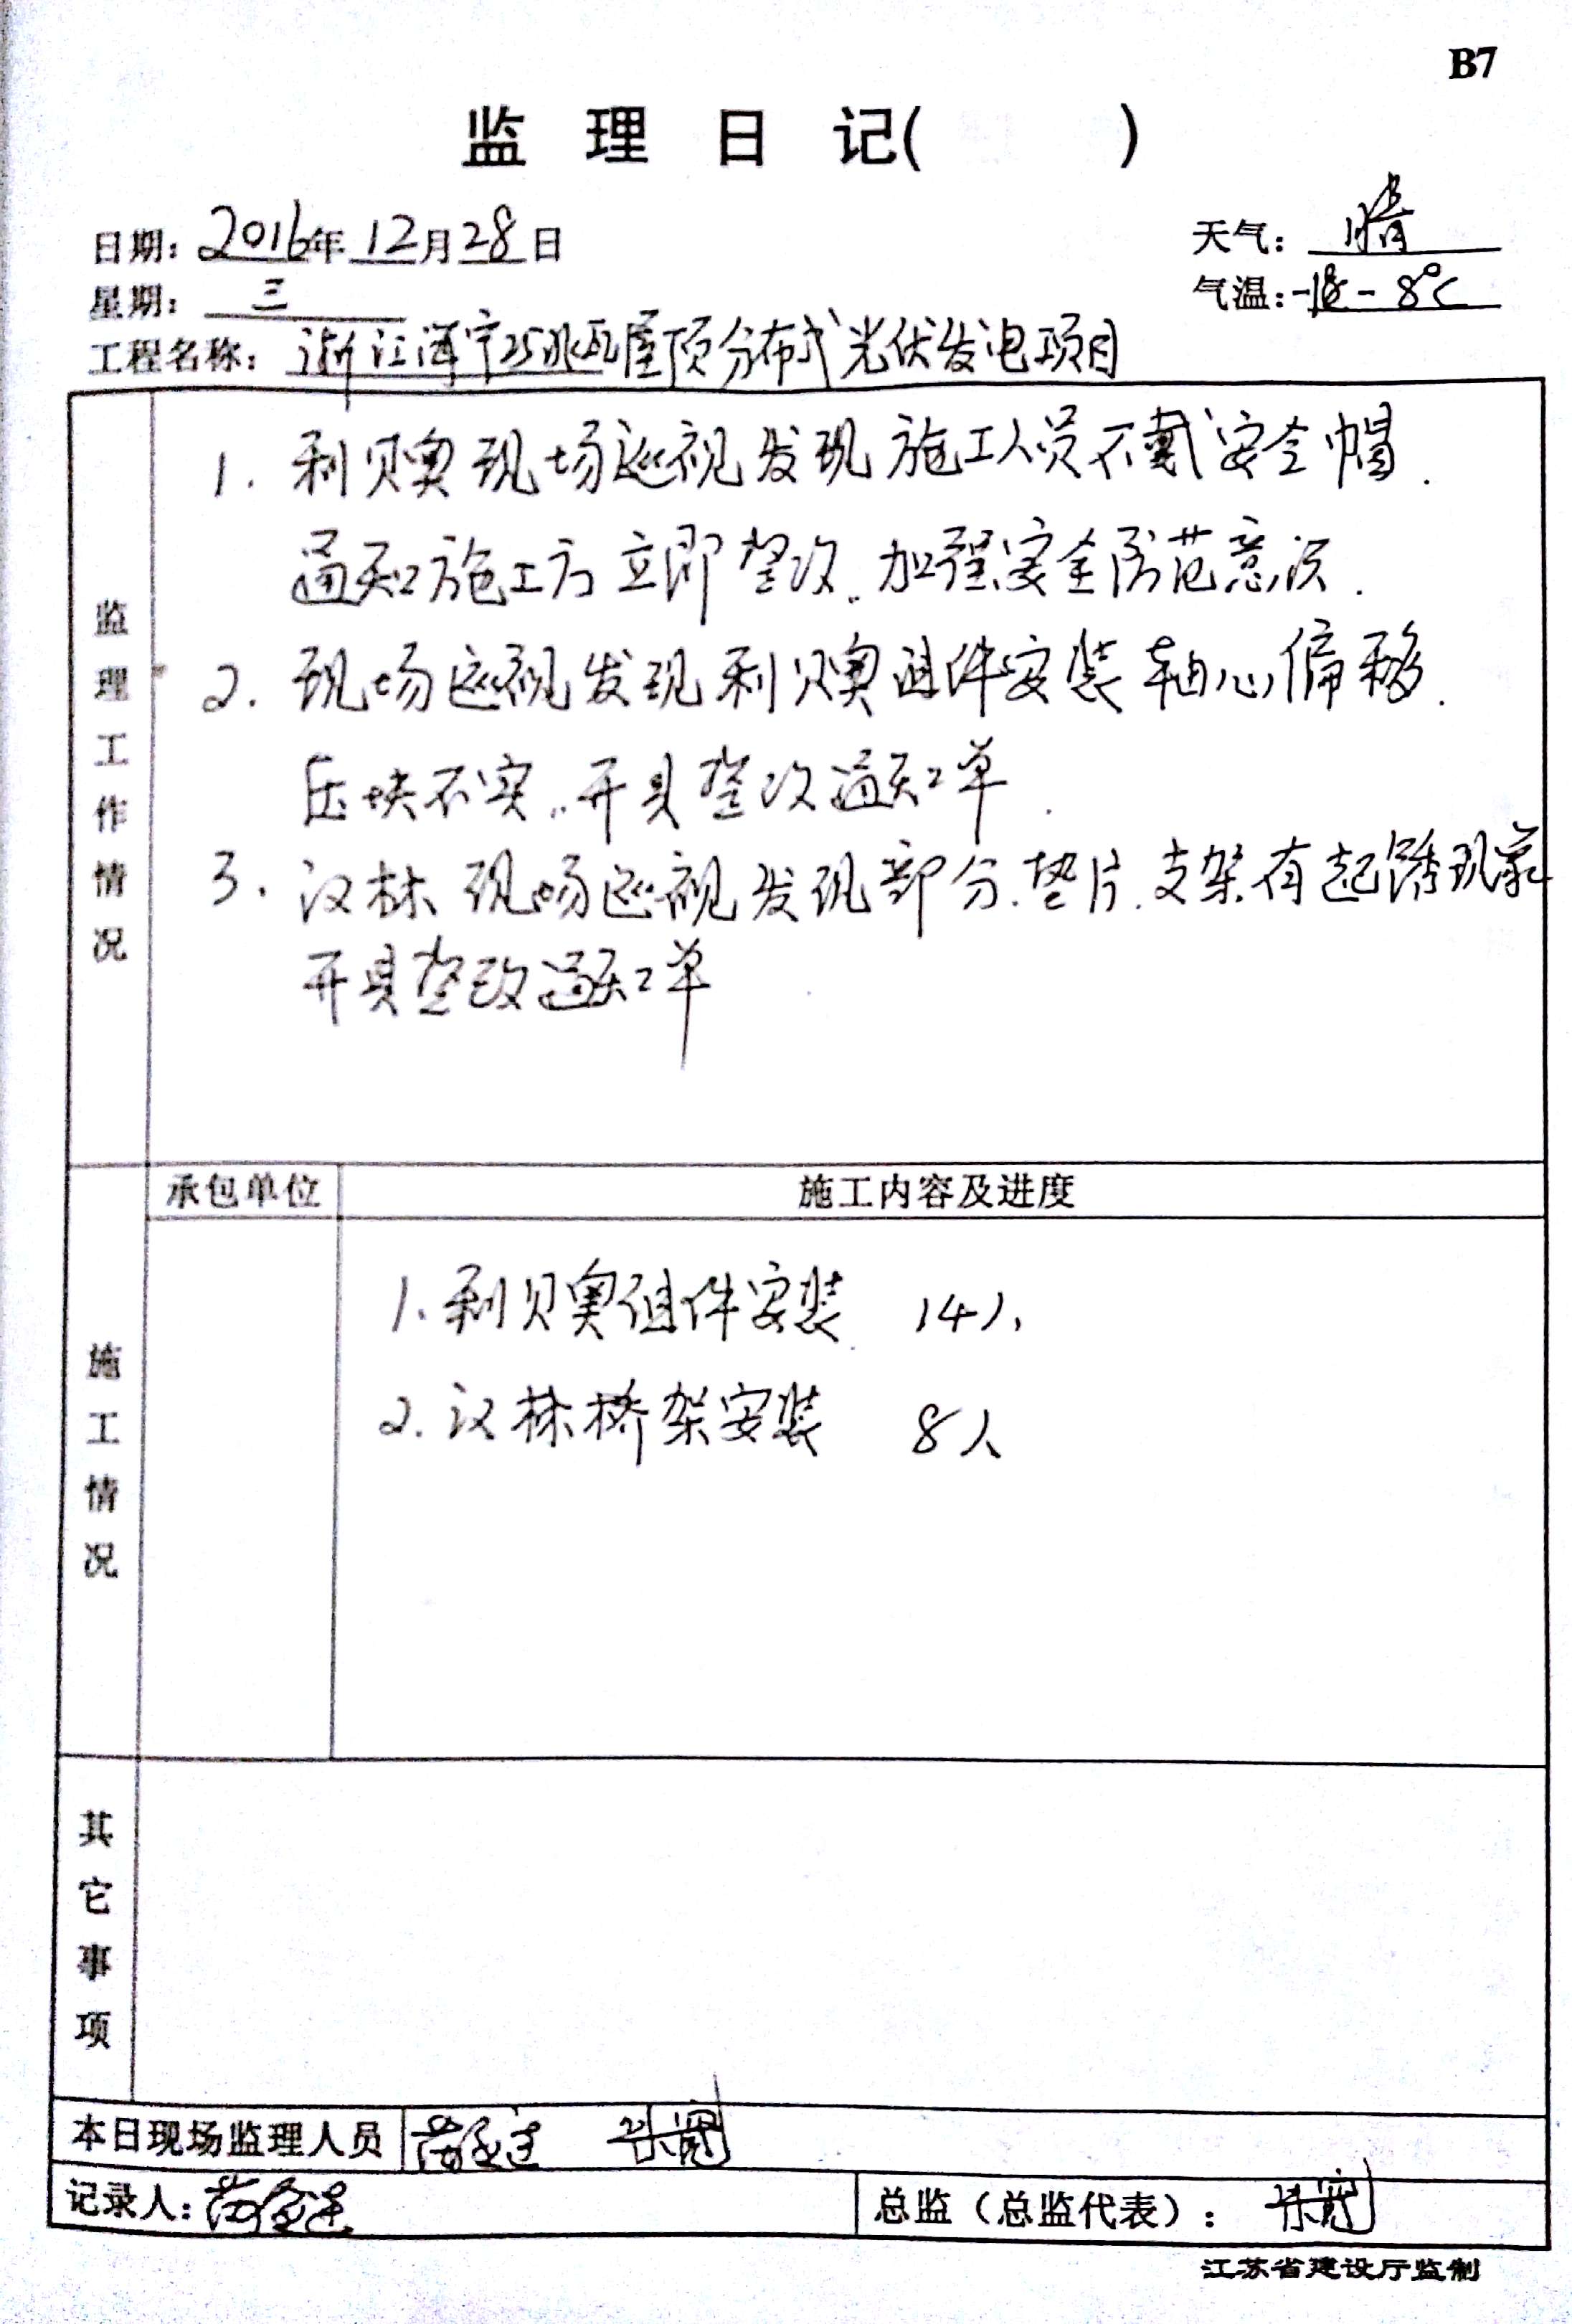 B7
监理日记( )
日期: 2016年12月28日
天气: 晴
星期: 三
气温: - 8℃
工程名称: 浙江海宁25兆瓦屋顶分布式光伏发电项目
监理工作情况
1. 利贝奥现场巡视发现施工人员不戴安全帽.
通知施工方立即整改. 加强安全防范意识.
2. 现场巡视发现利贝奥组件安装轴心偏移.
压块不实.. 开具整改通知单.
3. 汉林现场巡视发现部分.垫片.支架有起锈现象
开具整改通知单
承包单位 施工内容及进度
施工情况
1. 利贝奥组件安装 14人
2. 汉林桥架安装 8人
其它事项
本日现场监理人员
记录人:
总监（总监代表）:
江苏省建设厅监制